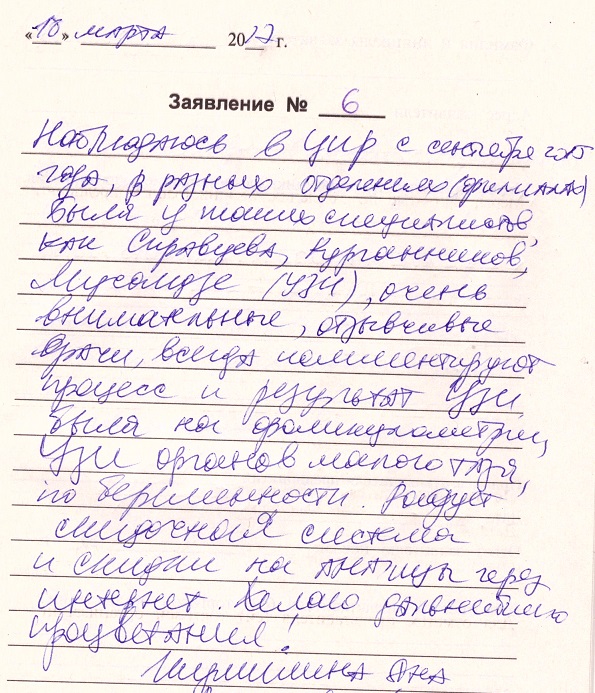 «18» марта 2017 г.
Заявление № 6
Наблюдаюсь в ЦИР с сентября 2015
года, в разных отделениях (филиалах)
Была у таких специалистов,
как Справцева, Курганников,
(УЗИ), очень
внимательные, отзывчивые
врачи, всегда комментируют
процесс и результат УЗИ.
Была на фолликулометрии,
УЗИ органов малого таза,
по беременности. Радует
скидочная система
и скидки на анализы через
интернет. Желаю дальнейшего
процветания!
Анна